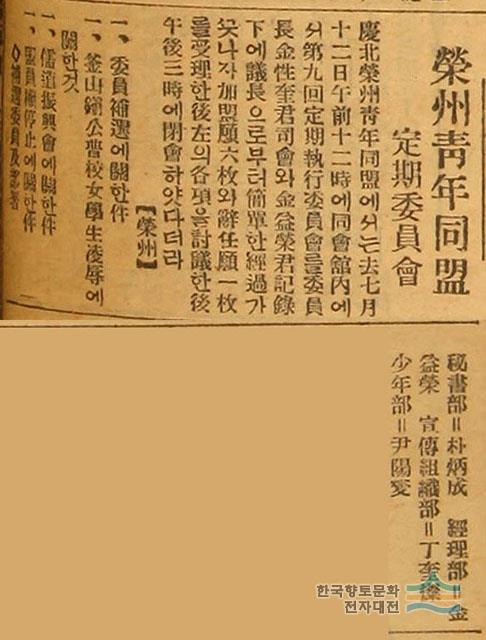 榮州靑年同盟
定期委員會
慶北榮州靑年同盟에서는去七月
十二日午前十二時에同會舘內에
서第九回定期執行委員會를委員
長金性奎君司會와金益榮君記錄
下에議長으로부터簡單한經過가
잇나자加盟願六枚와辭任願一枚
를受理한後左의各項을討議한後
午後三時에閉會하얏다더라
【榮州】
一、委員補選에關한件
一、釜山鎭公普校女學生凌辱에
關한것
一、儒道振興會에關한件
一、盟員權停止에關한件
◇補選委員及部署
秘書部＝朴炳成 經理部＝金
益榮 宣傳組織部＝丁奎
少年部＝尹陽
한국향토문화
전자대전